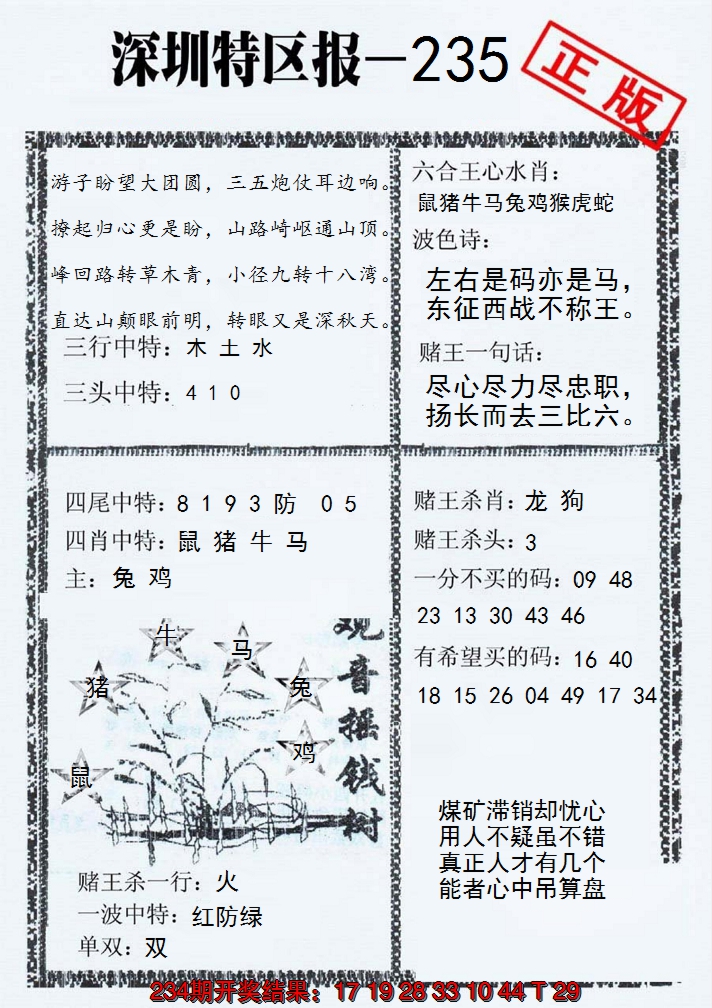 深圳特区报－235
正版
游子盼望大团圆，三五炮仗耳边响。
撩起归心更是盼，山路崎岖通山顶。
峰回路转草木青，小径九转十八湾。
直达山颠眼前明，转眼又是深秋天。
三行中特：木 土 水
三头中特：4 1 0
六合王心水肖：
鼠猪牛马兔鸡猴虎蛇
波色诗：
左右是码亦是马，
东征西战不称王。
赌王一句话：
尽心尽力尽忠职，
扬长而去三比六。
四尾中特：8 1 9 3 防 0 5
四肖中特：鼠 猪 牛 马
主：兔 鸡
牛
马
猪
兔
鸡
鼠
观音摇钱树
赌王杀一行：火
一波中特：红防绿
单双：双
赌王杀肖：龙 狗
赌王杀头：3
一分不买的码：09 48
23 13 30 43 46
有希望买的码：16 40
18 15 26 04 49 17 34
煤矿滞销却忧心
用人不疑虽不错
真正人才有几个
能者心中吊算盘
234期开奖结果：17 19 28 33 10 44 T 29